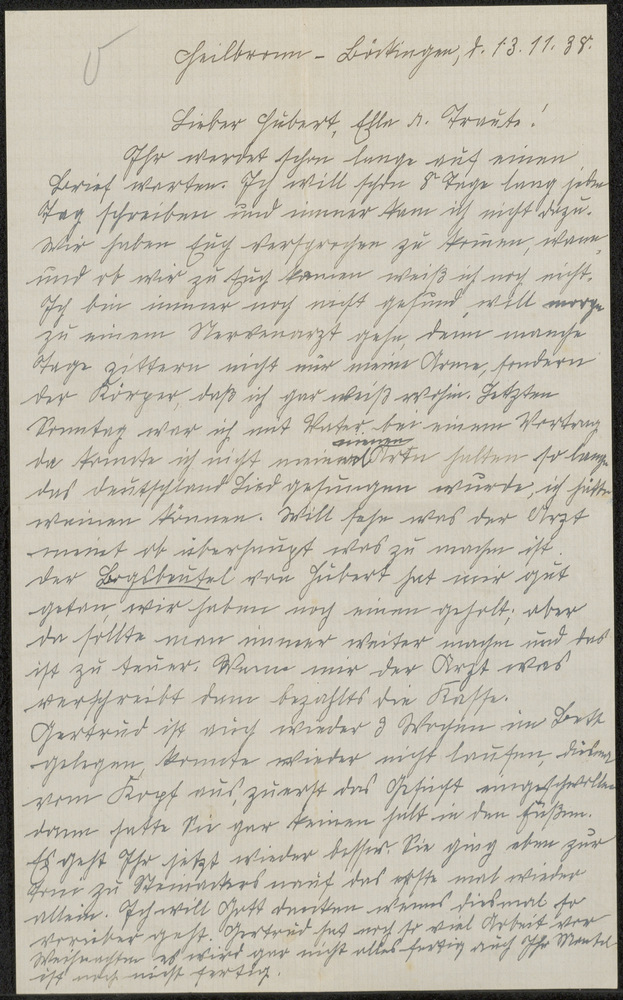 Heilbronn - Böckingen, d. 13. 11. 38.
Lieber Hubert, Ella u. Traute!
Ihr werdet schon lange auf einen
Brief warten. Ich will schon 8 Tage lang jeden
Tag schreiben und immer kam ich nicht dazu.
Wir haben Euch versprochen zu kommen, wann
und ob wir zu Euch kommen weiß ich noch nicht.
Ich bin immer noch nicht gesund, will morgen
zu einem Nervenarzt gehn, denn manche
Tage zittern nicht nur meine Arme, sondern
der Körper, daß ich gar weiß wohin. Letzten
Sonntag war ich mit Vater bei einem Vortrag
da konnte ich nicht meinen Arm halten so lange
das Deutschland Lied gesungen wurde, ich hätte
weinen können. Will sehn was der Arzt
meint ob überhaupt was zu machen ist.
Der von Hubert hat mir gut
getan, wir haben noch einen geholt; aber
da sollte man immer weiter machen und das
ist zu teuer. Wenn mir der Arzt was
verschreibt dann bezahlts die Kasse.
Gertrud ist auch wieder 3 Wochen im Bett
gelegen, konnte wieder nicht laufen, diesmal
vom Kopf aus, zuerst das Gesicht eingeschwollen
dann hatte sie gar keinen halt in den Füßen.
Es geht Ihr jetzt wieder besser. Sie ging eben zur
zu nauf das erste mal wieder
allein. Ich will Gott danken wenns diesmal so
vorüber geht. Gertrud hat noch so viel Arbeit vor
Weihnachten es wird gar nicht alles fertig auch Ihr Mantel
ist noch nicht fertig.